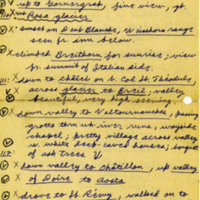 up to Gornergrat, fine view, gl.
Rosa glacier
x sunset on Dent Blanche, Weisshorn range
seen fr inn below.
x climbed Breithorn for sunrise; view
fr summit of Italian side.
down to chalet on t. Col St. Théodule
x across glacier to Breuil, valley
beautiful, very high scenery
down valley to Valtournanche, passing
grotto torn wh river runs, wayside
chapel; pretty village across valley
w. white deep-eaved houses,
of oak trees V
down valley to Châtillon, up valley
of Doire to Aosta
x drove to St. Rémy, walked on to